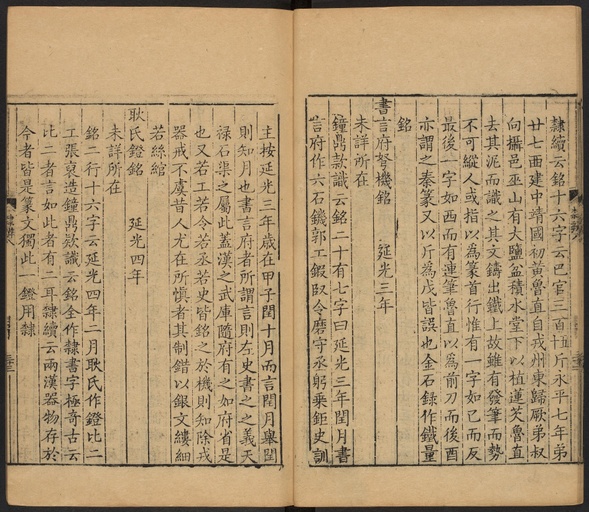 隸續云銘十六字云巴官三百五十斤永平七年弟
廿七酉建中靖國初黃魯直自戎州東歸厥弟叔
向攝邑巫山有大鹽盆積水堂下以植蓮芡魯直
去其泥而識之其文鑄出鐵上故雖有發筆而勢
不可縱人或指以為篆首行惟有一字如巳而反
最後一字如西而有連筆魯直以為前刀而後酉
亦謂之秦篆又以斤為戊皆誤也金石錄作鐵量
銘
書言府弩機銘 延光三年
未詳所在
鐘鼎款識云銘二十有七字曰延光三年閏月書
言府作六石鐖郭工鍜㕁令磨守丞躬乗鉅史訓
主按延光三年歲在甲子閏十月而言閏月舉閏
則知月也書言府者所謂言則左史書之之義天
祿石渠之屬此蓋漢之武庫隨府有之如府省是
也又若工若令若丞若史皆銘之於機則知除戎
器戒不虞昔人尤在所慎者其制錯以銀文縷細
若絲綰
耿氏鐙銘 延光四年
未詳所在
銘二行十六字云延光四年二月耿氏作鐙比二
工張裒造鐘鼎欵識云銘全作隸書字極奇古云
比二者言如此者有二耳隸續云兩漢器物存於
今者皆是篆文獨此一鐙用隸